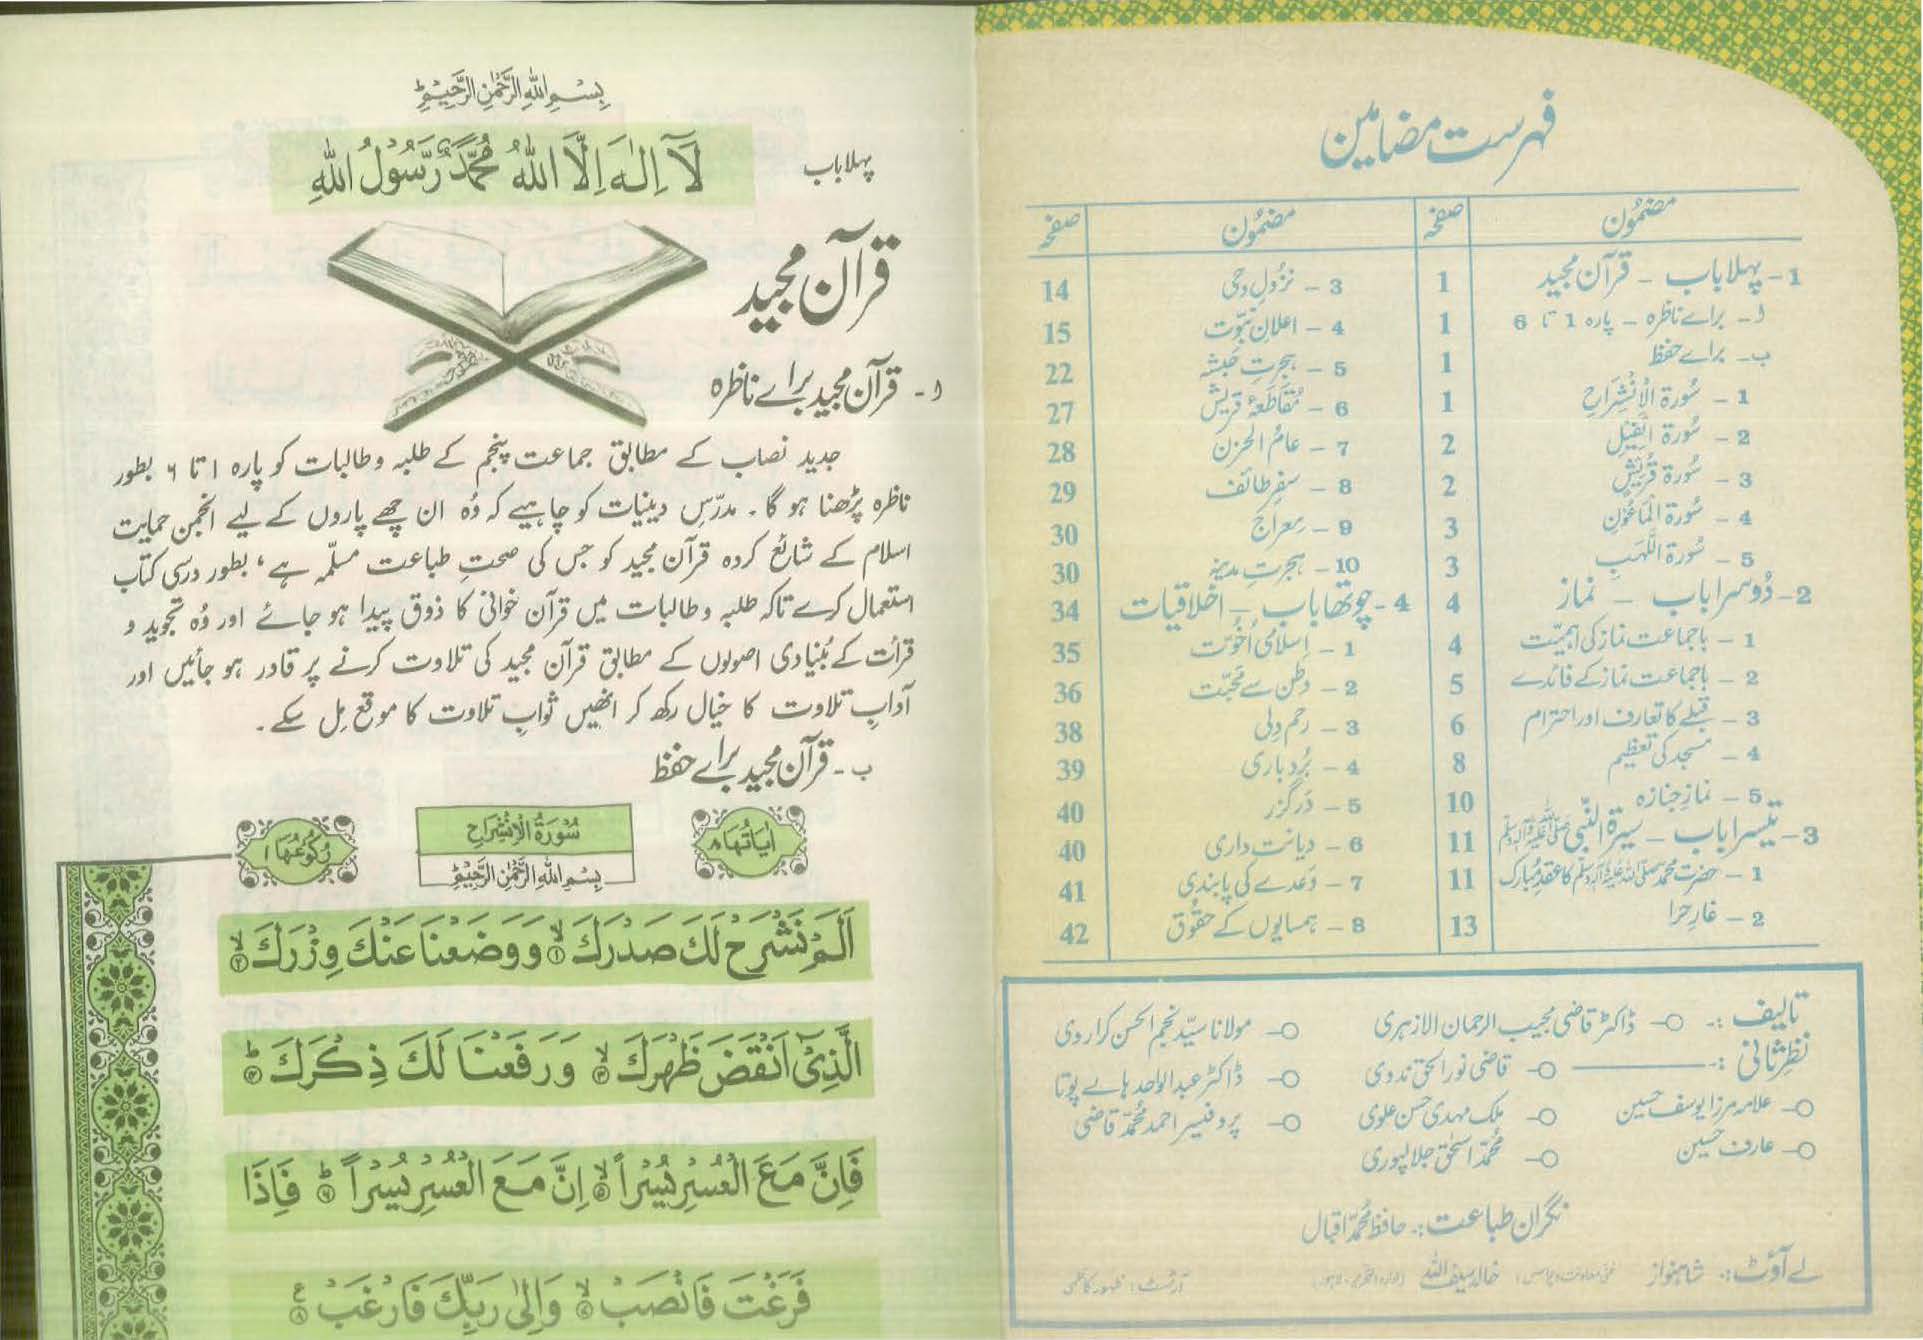 فہرست مضامین
مضمُون صفحہ مضمُون صفحہ
1- پہلا باب - قرآن مجید 1
ا- براے ناظرہ - پارہ 1 تا 6 1
ب- براے حفظ 1
1 - سُورۃ الْاِنْشِرَاحِ 1
2 - سُورۃ الْفِیْلِ 2
3 - سُورۃ قُرَیْشٍ 2
4 - سُورۃ الْمَاعُوْنِ 3
5 - سُورۃ اللَّہَبِ 3
2- دُوسرا باب - نماز 4
1 - باجماعت نماز کی اہمیّت 4
2 - باجماعت نماز کے فائدے 5
3 - قبلے کا تعارف اور احترام 6
4 - مسجد کی تعظیم 8
5 - نمازِ جنازہ 10
3- تیسرا باب - سیرۃ النّبی صلی اللہ علیہ وآلہ وسلم 11
1 - حضرت محمد صلی اللہ علیہ وآلہ وسلم کا عقدِ مُبارک 11
2 - غارِ حرا 13
3 - نزُولِ وحی 14
4 - اعلانِ نبوّت 15
5 - ہجرتِ حبشہ 22
6 - مُقَاطَعۂ قریش 27
7 - عامُ الحزن 28
8 - سفرِ طائف 29
9 - معراج 30
10 - ہجرتِ مدینہ 30
4- چوتھا باب - اخلاقیات 34
1 - اِسلامی اُخوّت 35
2 - وطن سے محبّت 36
3 - رحم دِلی 38
4 - بُردباری 39
5 - دَرگزر 40
6 - دیانت داری 40
7 - وَعدے کی پابندی 41
8 - ہمسایوں کے حقُوق 42
تالیف :- ڈاکٹر قاضی مجیب الرحمان الازہری مولانا سیّد نجم الحسن کراروی
نظرثانی :- قاضی نور الحق ندوی ڈاکٹر عبدالواحد ہالے پوتا
علامہ مرزا یوسف حسین ملک مہدی حسن علوی پروفیسر احمد مُحمّد قاضی
عارف حسین مُحمّد اسحٰق جلالپوری
نگران طباعت :- حافظ مُحمّد اقبال
لے آؤٹ :- شاہنواز خالد سیف اللہ آرٹسٹ : ظہور کاظمی
بِسْمِ اللّٰہِ الرَّحْمٰنِ الرَّحِیْمِ
لَآ اِلٰہَ اِلَّا اللّٰہُ مُحَمَّدٌ رَّسُوْلُ اللّٰہِ
پہلا باب
قرآن مجید
ا - قرآن مجید براے ناظرہ
جدید نصاب کے مطابق جماعت پنجم کے طلبہ و طالبات کو پارہ ۱ تا ۶ بطور
ناظرہ پڑھنا ہو گا ۔ مدرّسِ دینیات کو چاہیے کہ وُہ ان چھے پاروں کے لیے انجمن حمایت
اسلام کے شائع کردہ قرآن مجید کو جس کی صحتِ طباعت مسلّمہ ہے ، بطور درسی کتاب
استعمال کرے تاکہ طلبہ و طالبات میں قرآن خوانی کا ذوق پیدا ہو جائے اور وُہ تجوید و
قرائت کے بُنیادی اصولوں کے مطابق قرآن مجید کی تلاوت کرنے پر قادر ہو جائیں اور
آدابِ تلاوت کا خیال رکھ کر انھیں ثوابِ تلاوت کا موقع مِل سکے ۔
ب - قرآن مجید براے حفظ
اٰیَاتُہَا ۸ سُوْرَۃُ الْاِنْشِرَاحِ رُکُوْعُہَا ۱
بِسْمِ اللّٰہِ الرَّحْمٰنِ الرَّحِیْمِ
اَلَمْ نَشْرَحْ لَكَ صَدْرَكَ ۙ۱ وَوَضَعْنَا عَنْكَ وِزْرَكَ ۙ۲
الَّذِیْٓ اَنْقَضَ ظَهْرَكَ ۙ۳ وَرَفَعْنَا لَكَ ذِكْرَكَ ؕ۴
فَاِنَّ مَعَ الْعُسْرِ یُسْرًا ۙ۵ اِنَّ مَعَ الْعُسْرِ یُسْرًا ؕ۶ فَاِذَا
فَرَغْتَ فَانْصَبْ ۙ۷ وَاِلٰی رَبِّكَ فَارْغَبْ ۸ ع